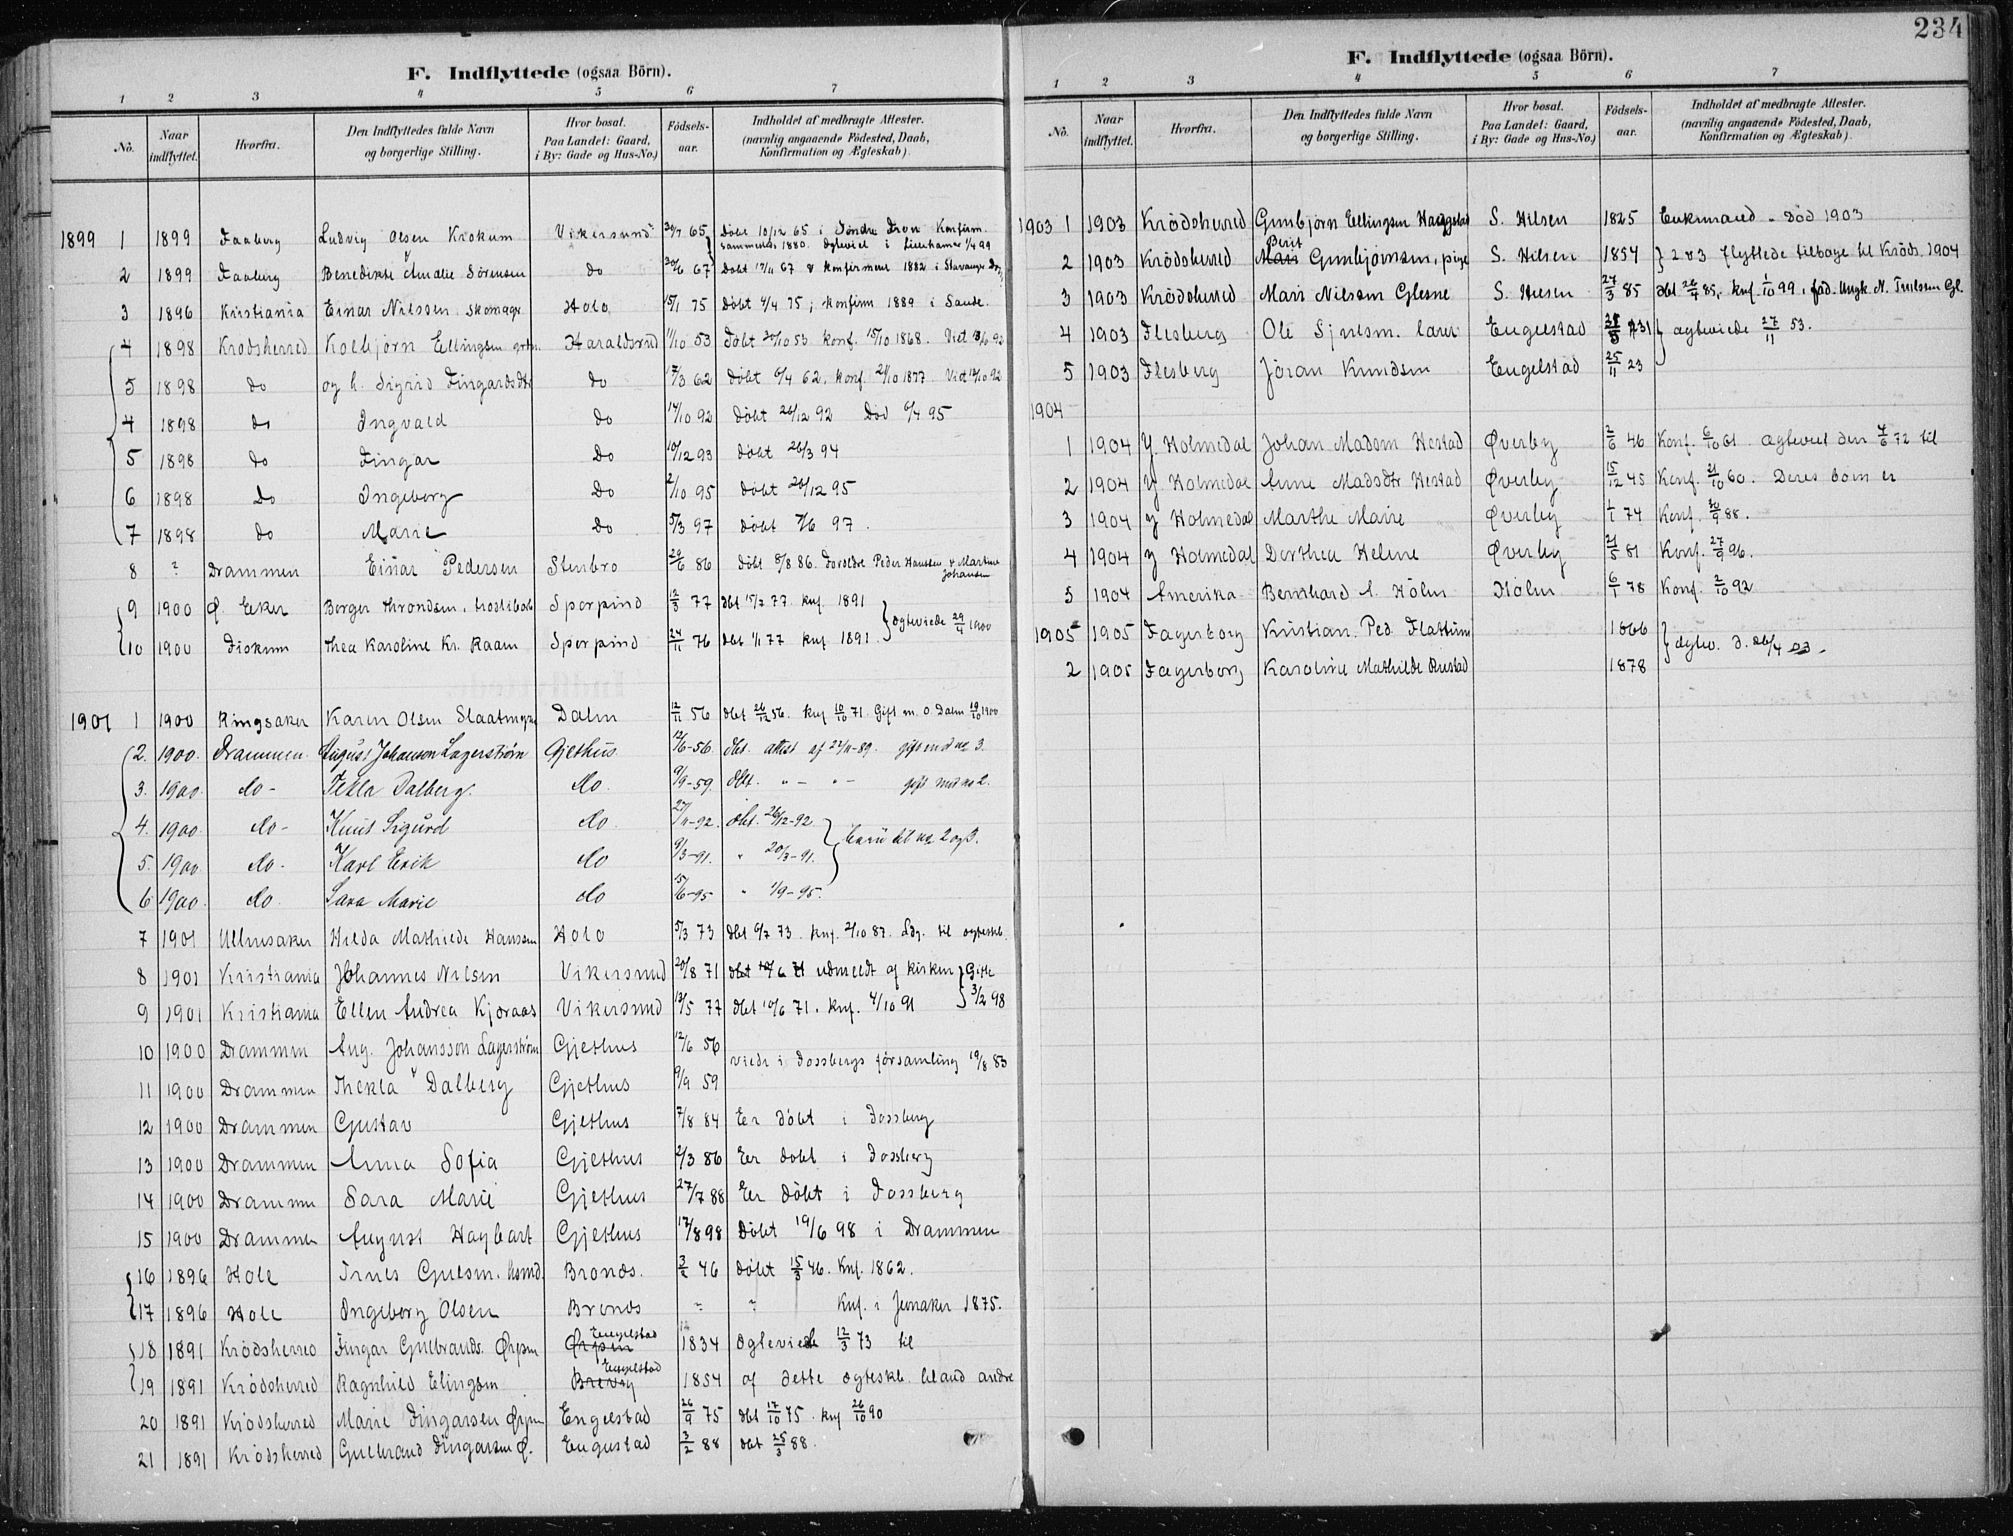 234
F. Indflyttede (ogsaa Börn).
1 2 3 4 5 6 7
No. Naar indflyttet. Hvorfra. Den Indflyttedes fulde Navn og borgerlige Stilling. Hvor bosat. Paa Landet: Gaard, i By: Gade og Hus-No.) Födsels-aar. Indholdet af medbragte Attester. (navnlig angaaende Födested, Daab, Konfirmation og Ægteskab).
1899 1 1899 Faaberg Ludvig Olsen Krokum Vikersund 65 Döbt 10/12 65 i Söndre Fron Konfirm.
sammesteds 1880. Ægteviet i Lillehamer 99
2 1899 Faaberg Benedikte Amalie Sörensen do 20/6 67 Döbt 17/11 67 & konfirmeret 1882 i Stavanger
3 1896 Kristiania Einar Nilssen skomager Holo 15/1 75 Döbt 4/4 75, konfirm 1889 i Sande
4 1898 Krödsherred Kolbjörn Ellingsen Haraldsrud 11/10 53 Döbt 30/10 53 konf. 15/10 1868. Viet 92
5 1898 do og h. Sigrid Fingarsdtr do 17/3 62 Döbt 6/4 62, konf. 21/10 1877 Viet 92
4 1898 do Ingvald do 14/10 92 Döbt 26/12 92 Död 6/4 95
5 1898 do Fingar do 10/12 93 döbt 26/3 94
6 1898 do Ingeborg do 2/10 95 döbt 26/12 95
7 1898 do Marie do 5/3 97 döbt 7/6 97.
8 ? Drammen Einar Pedersen Stenbro 29/6 86 döbt 8/8 86. Forældre Peder Hanssen & Martine Johansen
9 1900 Ø. Eker Borger Throndsen, Sporpind 12/3 77 dbt 15/7 77 knf. 1891
10 1900 Fiskum Thea Karoline Kr. Raaen Sporpind 24/11 76 dbt 1/1 77 knf 1891 } ægteviede 29/4 1900
1901 1 1900 Ringsaker Karen Olsen Slaatmyr Dalen 12/11 56 dbt 26/12 56. knf 10/10 71 Gift m. O. Dalen 1900
2. 1900. Drammen August Johanson Lagerström Gjethus 12/6-56 dbt. attest af 22/11-89. gift med no 3.
3. 1900. do- Tekla Dalberg. do. 9/9-59 dbt. " — " — gift med no 2.
4. 1900. do- Knut Sigurd do 27/11-92. dbt. 26/12-92
5. 1900 do. Karl Erik do 9/3-91. " 20/3-91. } börn til no 2 og 3.
6 1900. do. Sara Marie do 15/6-95 " 1/9-95.
7 1901 Ullensaker Hilda Mathilde Hanssen Holo 5/3 73 dbt 6/7 73. knf. 2/10 87. Ldg. til ægteskb.
8 1901 Kristiania Johannes Nilsen Vikersund 20/8 71 udmeldt af kirken } Gifte
9 1901 Kristiania Ellen Andrea Kjöraas Vikersund 12/5 77 dbt 10/6 71. knf. 4/10 91 3/2 98
10 1900 Drammen Aug. Johansson Lagerström Gjethus 12/6 56 viede i Fossbergs församling 19/8 83
11 1900 Drammen Thekla Dalberg Gjethus 9/9 59
12 1900 Drammen Gustav Gjethus 7/8 84 Er döbt i Fossberg
13 1900 Drammen Anna Sofia Gjethus 2/3 86 Er döbt i Fossberg
14 1900 Drammen Sara Marie Gjethus 27/7 88 Er döbt i Fossberg
15 1900 Drammen August Hagbart Gjethus 17/8 98 Döbt 19/6 98 i Drammen
16 1896 Hole Gulsen. Brones. 3/2 46 döbt 15/3 46. Knf. 1862.
17 1896 Hole Ingeborg Olsen Brones " " Knf. i Jevnaker 1875.
18 1891 Krödsherred Fingar Gulbrands. Ørpen Ørpen Engelstad 1834 Ægteviede 12/3 73 til
19 1891 Krödsherred Ragnhild Elingsen Engelstad 1854 af dette ægteskb. bland andre
20 1891 Krödsherred Marie Fingarsen Ørpen Engelstad 26/9 75 dbt 17/10 75. knf 26/10 90
21 1891 Krödsherred Gulbrand Fingarsen Ø. Engelstad 3/2 88 dbt 25/3 88.
F. Indflyttede (ogsaa Börn).
1 2 3 4 5 6 7
No. Naar indflyttet. Hvorfra. Den Indflyttedes fulde Navn og borgerlige Stilling. Hvor bosat. Paa Landet: Gaard, i By: Gade og Hus-No.) Födsels-aar. Indholdet af medbragte Attester. (navnlig angaaende Födested, Daab, Konfirmation og Ægteskab).
1903 1 1903 Krödsherred Gunbjörn Ellingsen Haggestad S. Hilsen 1825 Enkemand. Död 1903
2 1903 Krödsherred Mari Berit Gunbjörnsen, pige S. Hilsen 1854 } 2 & 3 flyttede tilbage til Kröds. 1904
3 1903 Krödsherred Mari Nilsen Glesne S. Hilsen 27/3 85 dbt 26/4 85, knf. 1/10 99, föd. Ungk. N. Truilsen Gl.
4 1903 Flesberg Ole Sjulsen. Engelstad 31 } ægteviede 27/11 53.
5 1903 Flesberg Jöran Knudsen Engelstad 25/11 23
1904
1 1904 Y. Holmedal Johan Madsen Hestad Øverby 2/6 46 Konf. 6/10 61 ægteviet den 4/6 72 til
2 1904 Y. Holmedal Anne Madsdtr Hestad Øverby 15/12 45 Konf. 21/10 60. Deres börn er
3 1904 Y Holmedal Marthe Marie Øverby 1/1 74 Konf. 30/9 88.
4 1904 Y Holmedal Dorthea Helene Øverby 21/5 81 Konf. 27/9 96.
5 1904 Amerika Bernhard A. Hölen Hölen 6/1 78 Konf. 2/10 92
1905 1905 Fagerborg Kristian Ped. Flattum 1866 } ægtev. d. 26/4 03.
2 1905 Fagerborg Karoline Mathilde Rustad 1878